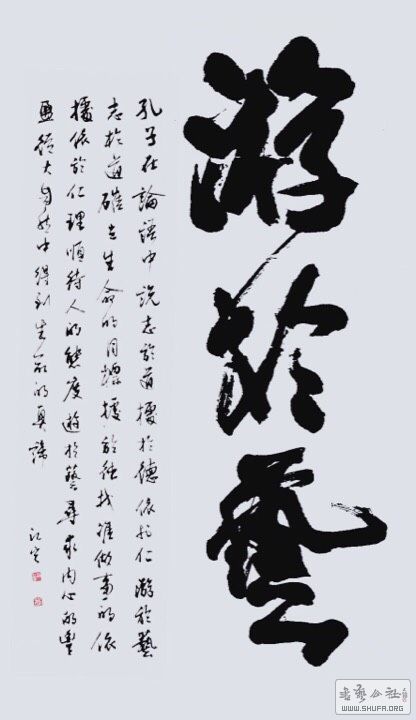 游於藝
孔子在論語中說志於道據於德依於仁游於藝
志於道確立生命的目標據於德找準做事的依
據依於仁理順待人的態度遊於藝尋求內心的豐
盈大自然中得到生命的真諦
書藝公社
WWW.SHUFA.ORG